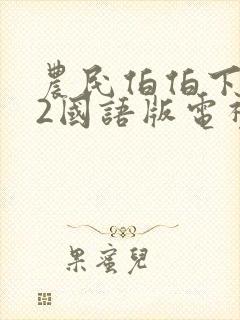 農民伯伯下
2國語版電視
果蜜兒